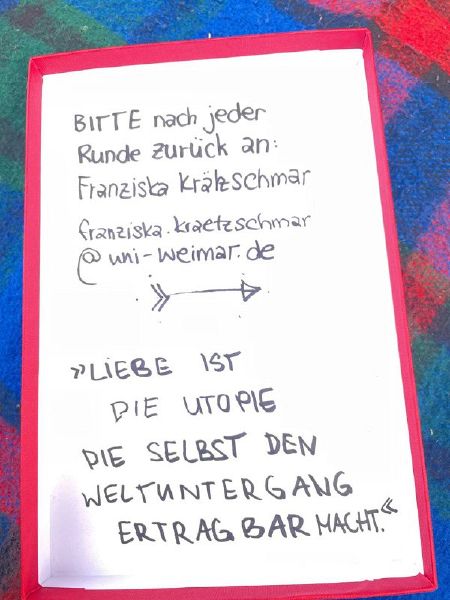 BITTE nach jeder
Runde zurück an:
Franziska Krätzschmar
franziska.kraetzschmar
@uni-weimar.de
»LIEBE IST
DIE UTOPIE
DIE SELBST DEN
WELTUNTERGANG
ERTRAGBAR MACHT.«